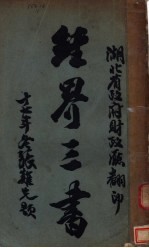 湖北省政府財政廳翻印
經界三書
十七年冬張難先題